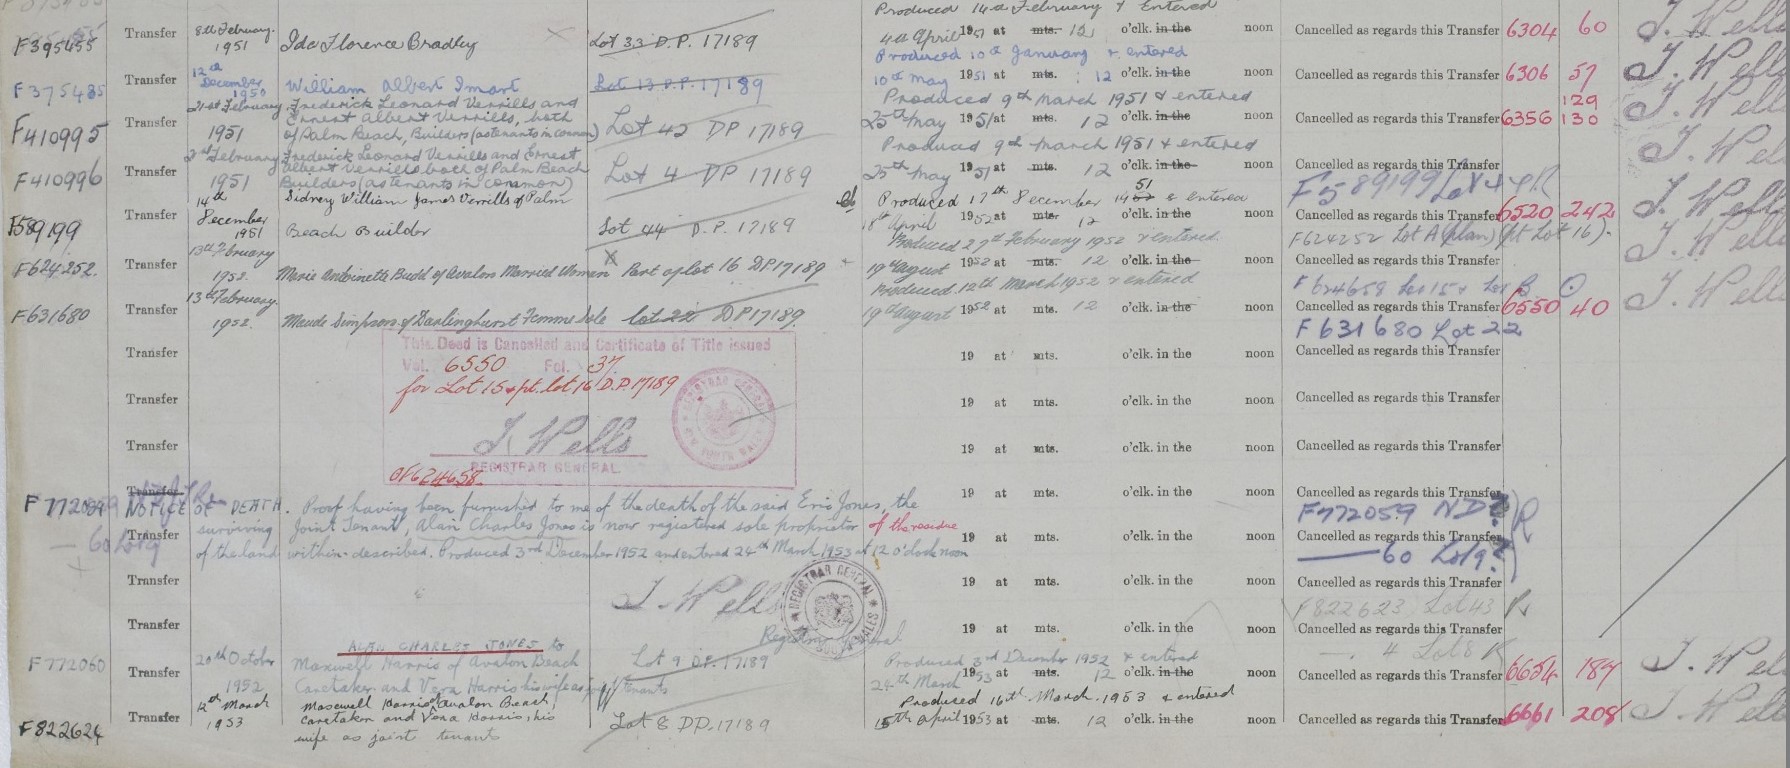 Produced 14th February & Entered
F395455 Transfer 8th February 1951 Ida Florence Bradley Lot 33 D.P. 17189 4th April 1951 at mts. 12 o'clk. in the noon Cancelled as regards this Transfer 6304 60 J. Wells
Produced 10th January & entered
F375485 Transfer 12th December 1950 William Albert Lot 13 D.P. 17189 10th May 1951 at mts. 12 o'clk. in the noon Cancelled as regards this Transfer 6306 57 J. Wells
Produced 9th March 1951 & entered
F410995 Transfer 21st February 1951 Frederick Leonard Verrills and
Ernest Albert Verrills, both
of Palm Beach, Builders (as tenants in common) Lot 42 DP 17189 25th May 1951 at 12 o'clk. in the noon Cancelled as regards this Transfer 6356 129 130 J. Wells
Produced 9th March 1951 & entered
F410996 Transfer February 1951 Frederick Leonard Verrills and Ernest
Albert Verrills both of Palm Beach
Builders (as tenants in common) Lot 4 DP 17189 25th May 1951 at mts. 12 o'clk. in the noon Cancelled as regards this Transfer J. Wells
F589199 Lot 44
Produced 17th December 1951 & entered
F589199 Transfer 14th December 1951 Sidney William James Verrills of Palm
Beach Builder Lot 44 D.P. 17189 18th April 1952 at mts. 12 o'clk. in the noon Cancelled as regards this Transfer 6520 242 J. Wells
Produced 27th February 1952 & entered
F624252 Lot A (plan) (pt Lot 16)
F624252. Transfer 13th February 1952. Marie Antoinette Budd of Avalon Married Woman Part of lot 16 DP 17189 19th August 1952 at mts. 12 o'clk. in the noon Cancelled as regards this Transfer J. Wells
Produced 12th March 1952 & entered
F624658 Lot 15 & Lot B
F631680 Transfer 13th February. 1952. Maude Simpson of Darlinghurst Femme Sole lot 22 D.P 17189. 19th August 1952 at mts. 12 o'clk. in the noon Cancelled as regards this Transfer 6550 40 J. Wells
F631680 Lot 22
This Deed is Cancelled and Certificate of Title issued
Vol. 6550 Fol. 37
for Lot 15 & pt. lot 16 D.P. 17189
J. Wells
REGISTRAR GENERAL
OF624658.
REGISTRAR GENERAL
Transfer 19 at mts. o'clk. in the noon Cancelled as regards this Transfer
Transfer 19 at mts. o'clk. in the noon Cancelled as regards this Transfer
Transfer 19 at mts. o'clk. in the noon Cancelled as regards this Transfer
Transfer 19 at mts. o'clk. in the noon Cancelled as regards this Transfer
F772059 NOTICE OF DEATH. Proof having been furnished to me of the death of the said Eric Jones, the
surviving Joint Tenant, Alan Charles Jones is now registered sole proprietor of the residue
of the land within described. Produced 3rd December 1952 and entered 24th March 1953 at 12 o'clock noon
60 Lot 9
F772059 ND
Transfer 19 at mts. o'clk. in the noon Cancelled as regards this Transfer
60 Lot 9
Transfer 19 at mts. o'clk. in the noon Cancelled as regards this Transfer
J. Wells
Registrar General
REGISTRAR GENERAL
F822623 Lot 43
Transfer 19 at mts. o'clk. in the noon Cancelled as regards this Transfer
4 Lot 8
ALAN CHARLES JONES to
Produced 3rd December 1952 & entered
F772060 Transfer 20th October 1952 Maxwell Harris of Avalon Beach
Caretaker and Vera Harris his wife as joint tenants Lot 9 D.P. 17189 24th March 1953 at mts. 12 o'clk. in the noon Cancelled as regards this Transfer 6654 187 J. Wells
Produced 16th March 1953 & entered
F822624 Transfer 12th March 1953 Maxwell Harris of Avalon Beach,
caretaker and Vera Harris, his
wife as joint tenants Lot 8 DP. 17189 15th April 1953 at mts. 12 o'clk. in the noon Cancelled as regards this Transfer 6661 208 J. Wells